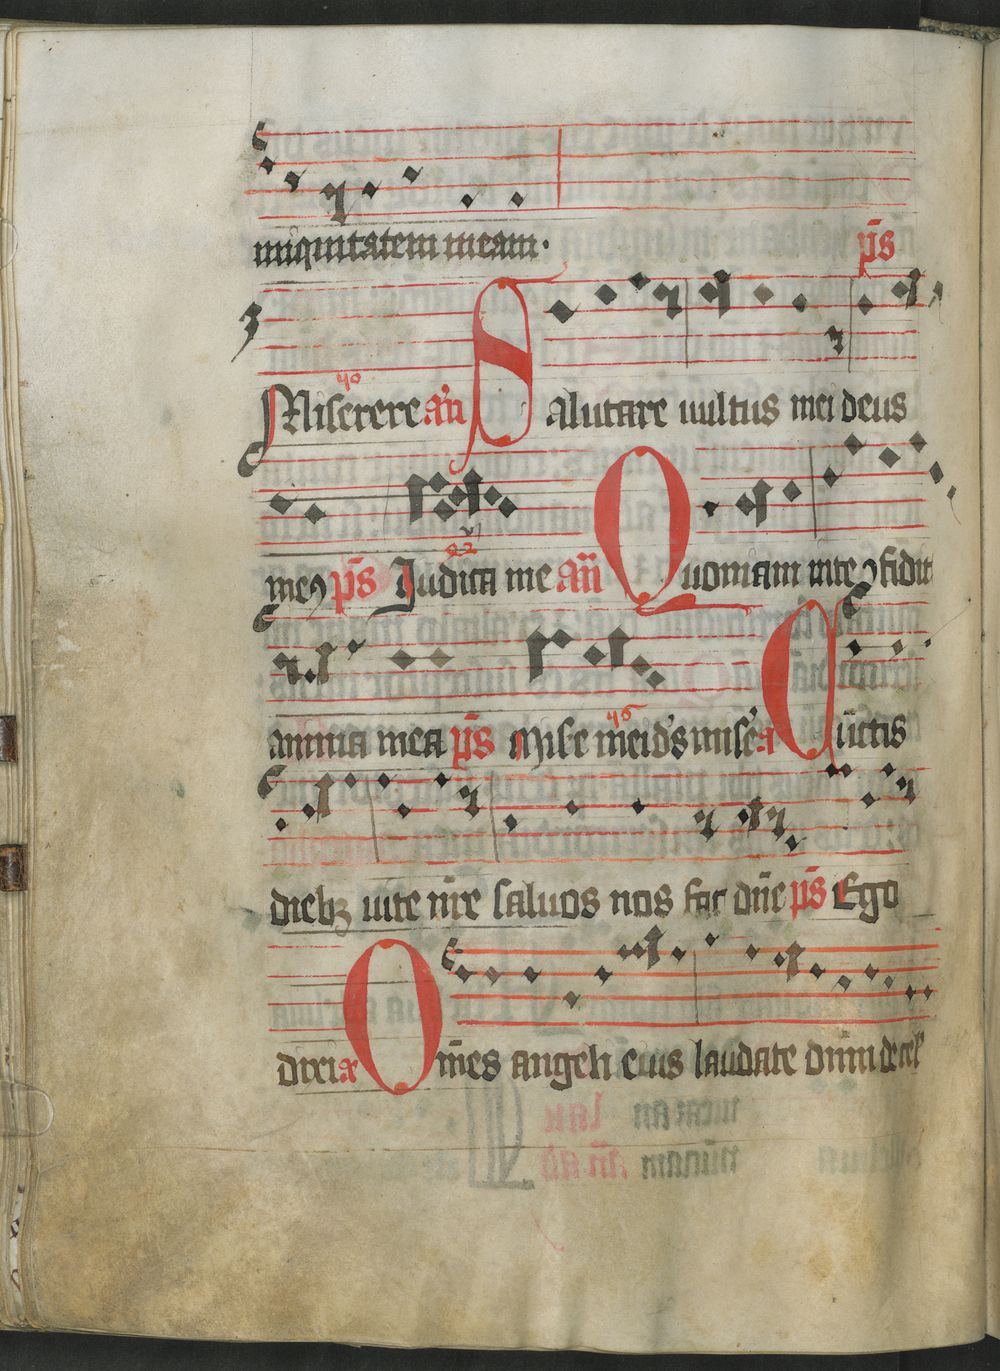 iniquitatem meam· p̄s
Miserere an̄ Salutare uultus mei deus
meꝰ p̄s Iudica me an̄ Quoniam in te ꝯfidit
anima mea p̄s Mise mei ds̄ mise a Cūctis
diebꝫ uite nr̄e saluos nos fac dn̄e p̄s Ego
dixi a Om̄es angeli eius laudate dnm̄ de cel